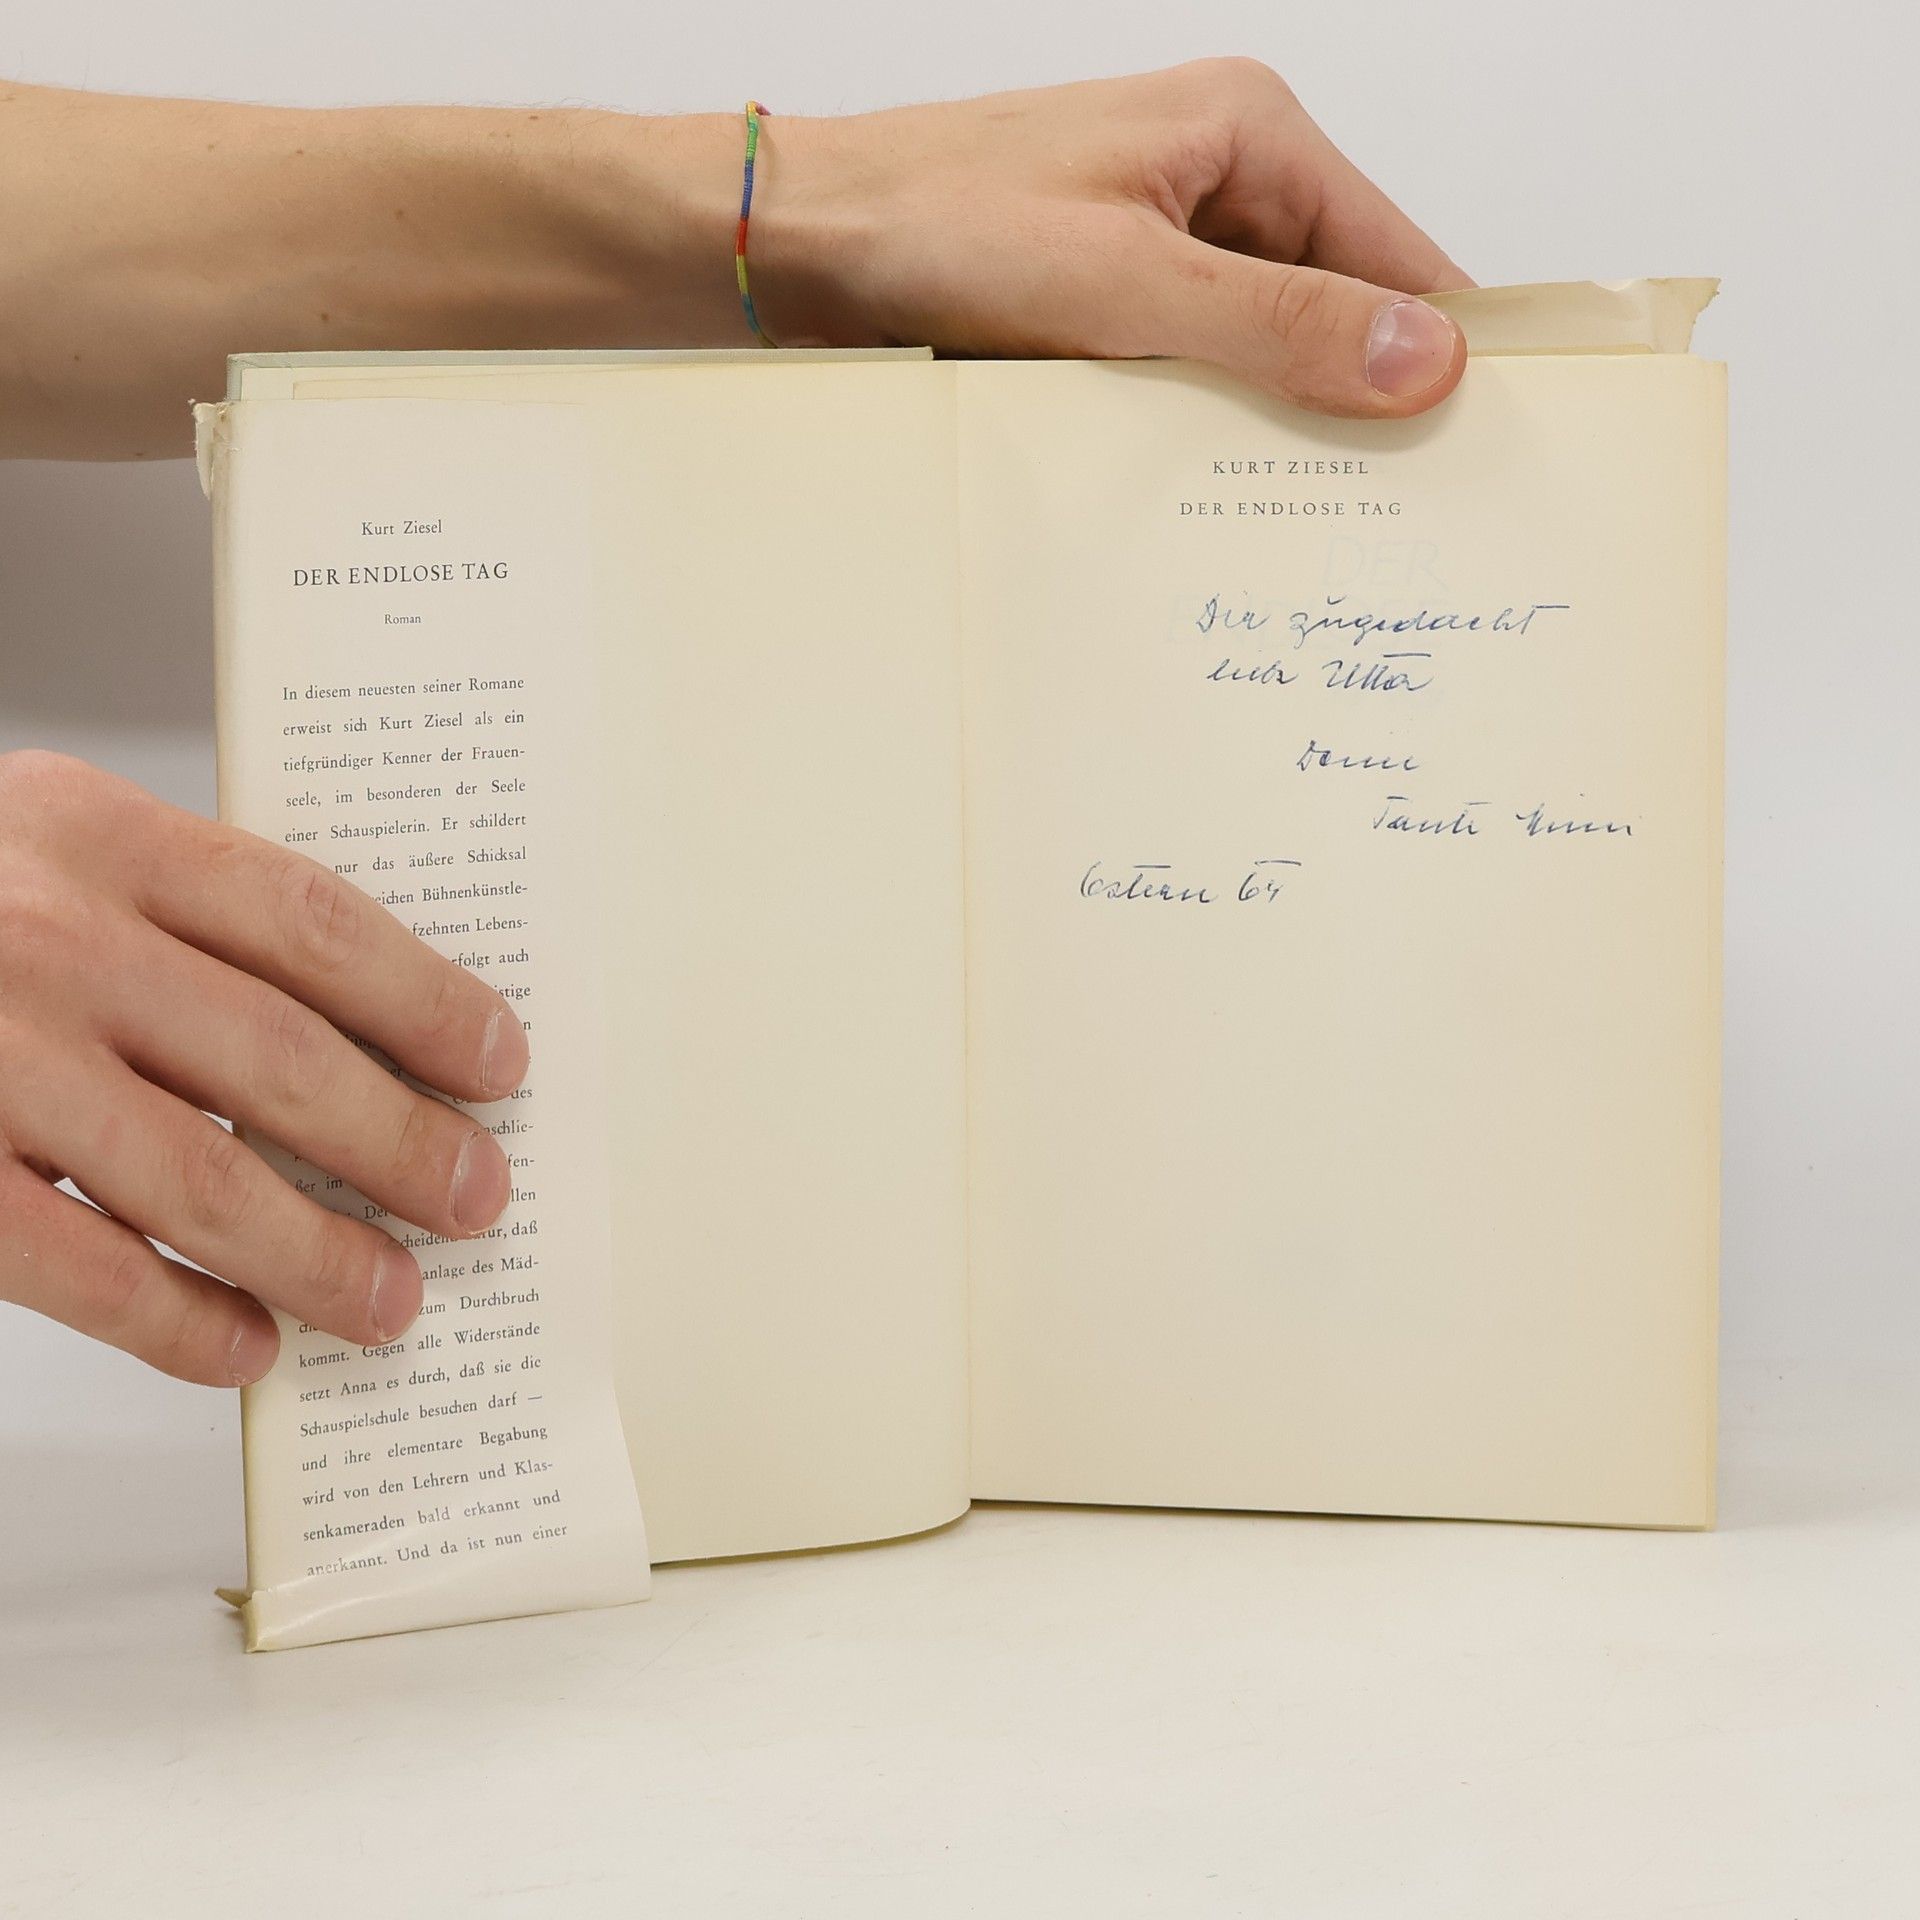 Kurt Ziesel
DER ENDLOSE TAG
Roman
In diesem neuesten seiner Romane
erweist sich Kurt Ziesel als ein
tiefgründiger Kenner der Frauen-
seele, im besonderen der Seele
einer Schauspielerin. Er schildert
nur das äußere Schicksal
eichen Bühnenkünstle-
fzehnten Lebens-
rfolgt auch
istige
n
des
nschlie-
fen-
ßer im llen
cheidend dafür, daß
anlage des Mäd-
zum Durchbruch
kommt. Gegen alle Widerstände
setzt Anna es durch, daß sie die
Schauspielschule besuchen darf —
und ihre elementare Begabung
wird von den Lehrern und Klas-
senkameraden bald erkannt und
anerkannt. Und da ist nun einer
KURT ZIESEL
DER ENDLOSE TAG
DER
Dir zugedacht
liebe Utta
Deine
Tante Minni
Ostern 64